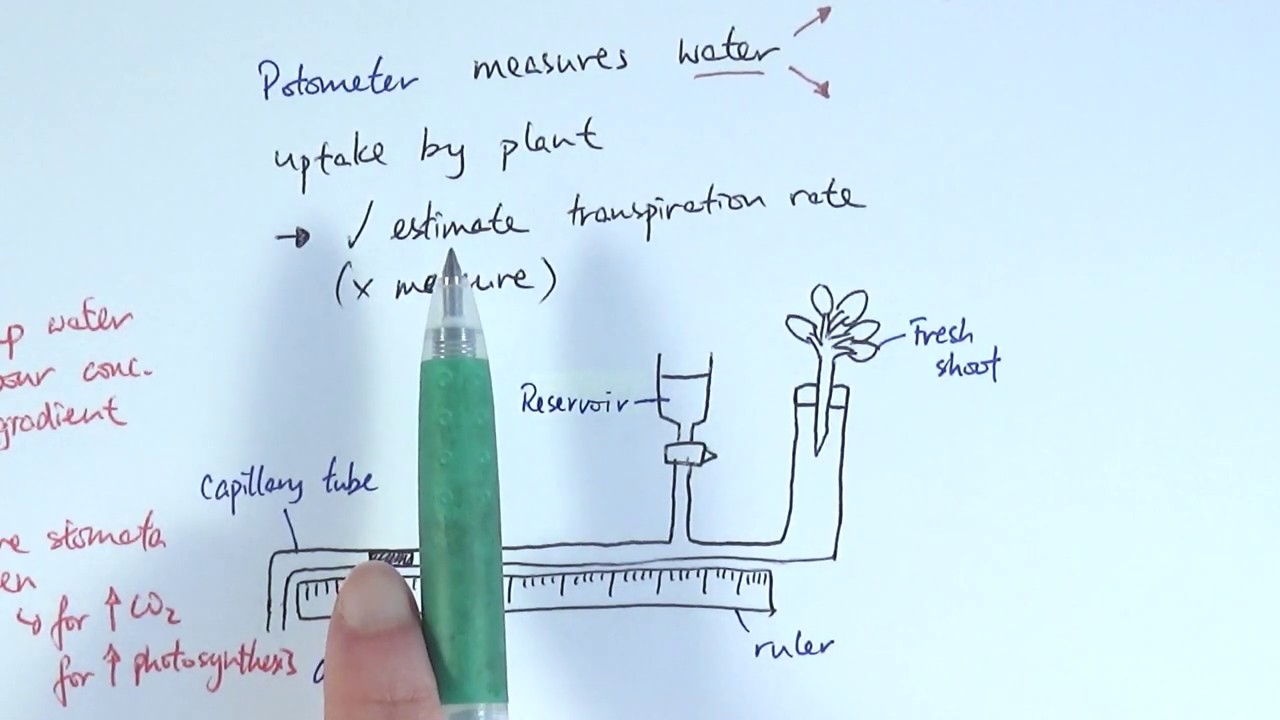 Potometer measures water
uptake by plant
→ ✓ estimate transpiration rate
(x me ure)
p water
our conc.
gradient
Fresh
shoot
Reservoir
Capillary tube
re stomata
en
↳ for ↑ CO₂
for ↑ photosynthesis
ruler